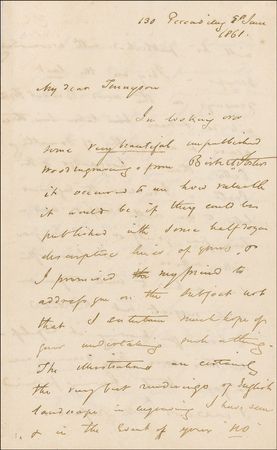 130 Piccadilly 8 June
1861.
My dear Tennyson
In looking over
some very beautiful unpublished
wood engravings from Birket Foster
it occurred to me how valuable
it would be if they could be
published with some half dozen
descriptive lines of yours, &
I promised my friend to
address you on the subject not
that I entertain much hope of
your undertaking such a thing.
The illustrations are certainly
the very best renderings of English
landscape in engraving I have seen
& in the event of your "no"